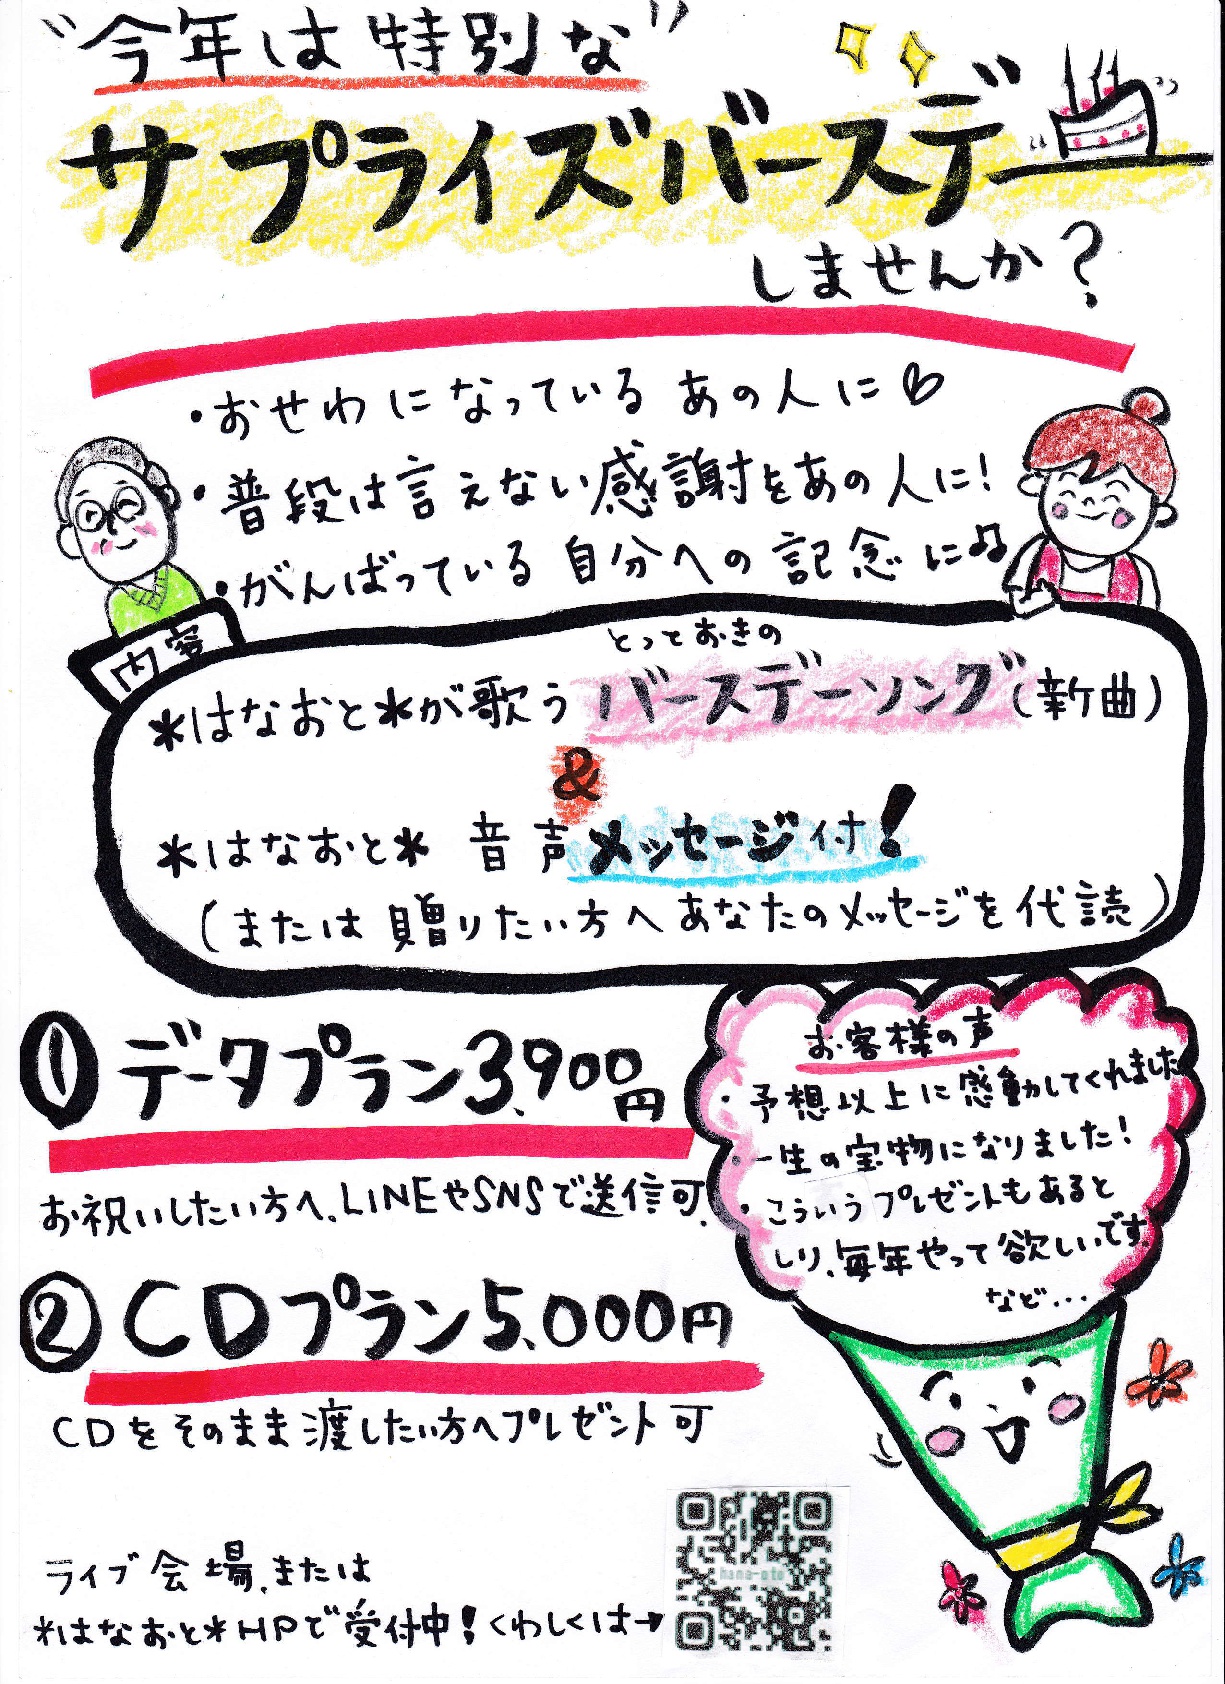 "今年は特別な"
サプライズバースデー
しませんか?
・おせわになっているあの人に♡
・普段は言えない感謝をあの人に!
・がんばっている自分への記念に♫
内容
とっておきの
*はなおと*が歌うバースデーソング(新曲)
&
*はなおと* 音声メッセージ付!
(または贈りたい方へあなたのメッセージを代読)
① データプラン3,900円
お祝いしたい方へ、LINEやSNSで送信可、
② CDプラン5,000円
CDをそのまま渡したい方へプレゼント可
お客様の声
・予想以上に感動してくれました
・一生の宝物になりました!
・こういうプレゼントもあると
しり、毎年やって欲しいです。
など...
ライブ会場、または
*はなおと*HPで受付中!くわしくは→
hana-oto